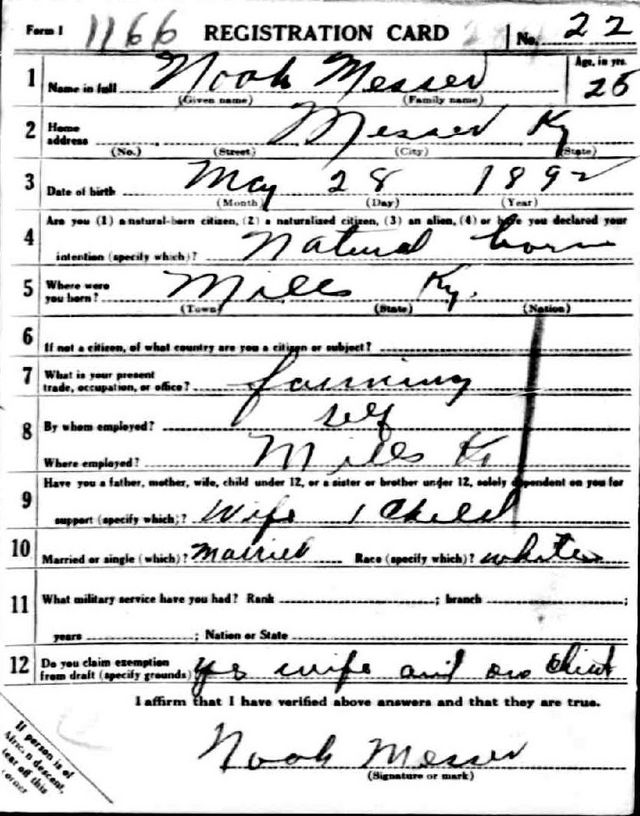 Form 1 1166 REGISTRATION CARD No. 22
1 Name in full Noah Messer Age, in yrs.
(Given name) (Family name) 25
2 Home address Messer Ky
(No.) (Street) (City) (State)
3 Date of birth May 28 1892
(Month) (Day) (Year)
4 Are you (1) a natural-born citizen, (2) a naturalized citizen, (3) an alien, (4) or have you declared your
intention (specify which)? Natural born
5 Where were you born? Mills Ky.
(Town) (State) (Nation)
6 If not a citizen, of what country are you a citizen or subject?
7 What is your present trade, occupation, or office? farming
8 By whom employed? self
Where employed? Mills Ky
9 Have you a father, mother, wife, child under 12, or a sister or brother under 12, solely dependent on you for
support (specify which)? Wife 1 Child
10 Married or single (which)? Married Race (specify which)? white
11 What military service have you had? Rank ; branch ;
years ; Nation or State
12 Do you claim exemption from draft (specify grounds) yes wife and child
I affirm that I have verified above answers and that they are true.
Noah Messer
(Signature or mark)
If person is of
African descent,
tear off this
corner